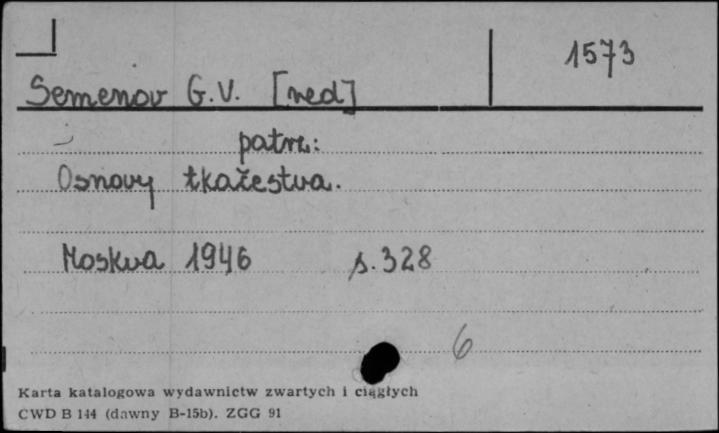 1573
Semenov G.V. [red]
patrz:
Osnovy tkažestva.
Moskva 1946 s. 328
6
Karta katalogowa wydawnictw zwartych i ciągłych
CWD B 144 (dawny B-15b). ZGG 91